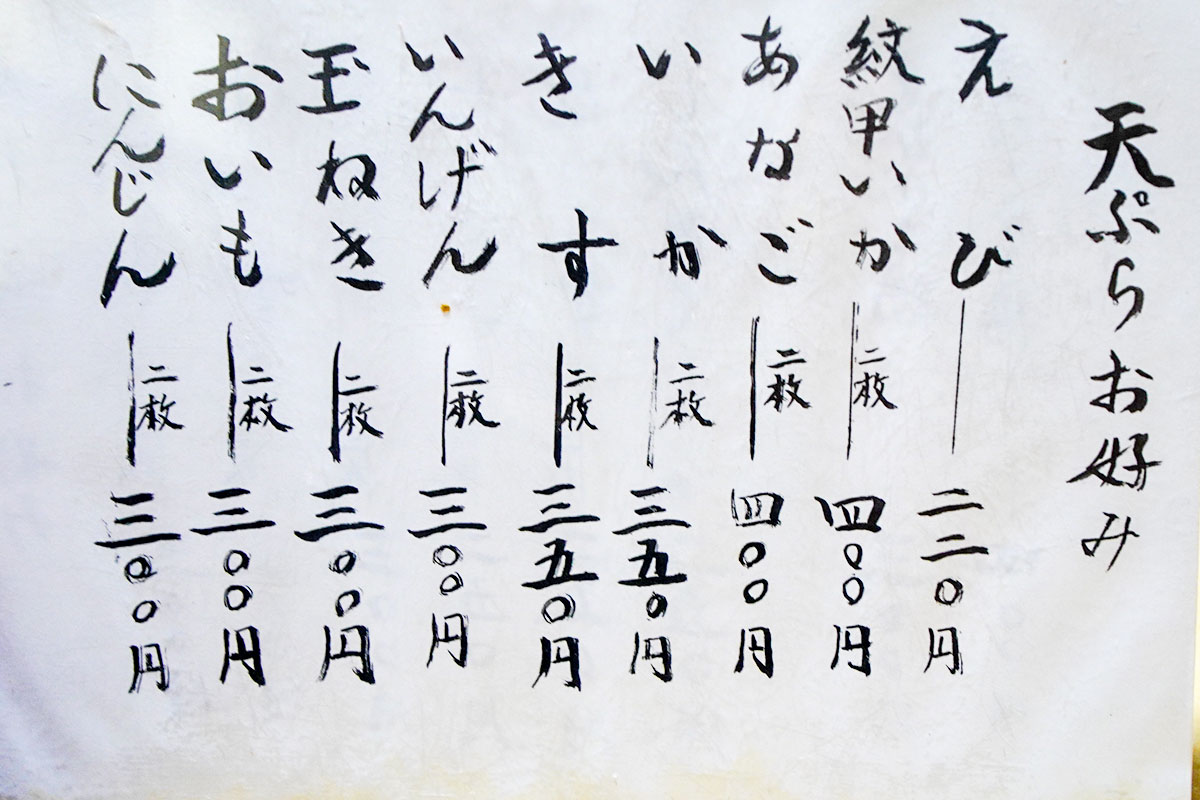 天ぷらお好み
えび｜二二〇円
紋甲いか｜二枚 四〇〇円
あなご｜二枚 四〇〇円
いか｜二枚 三五〇円
きす｜二枚 三五〇円
いんげん｜二枚 三〇〇円
玉ねき｜二枚 三〇〇円
おいも｜二枚 三〇〇円
にんじん｜二枚 三〇〇円